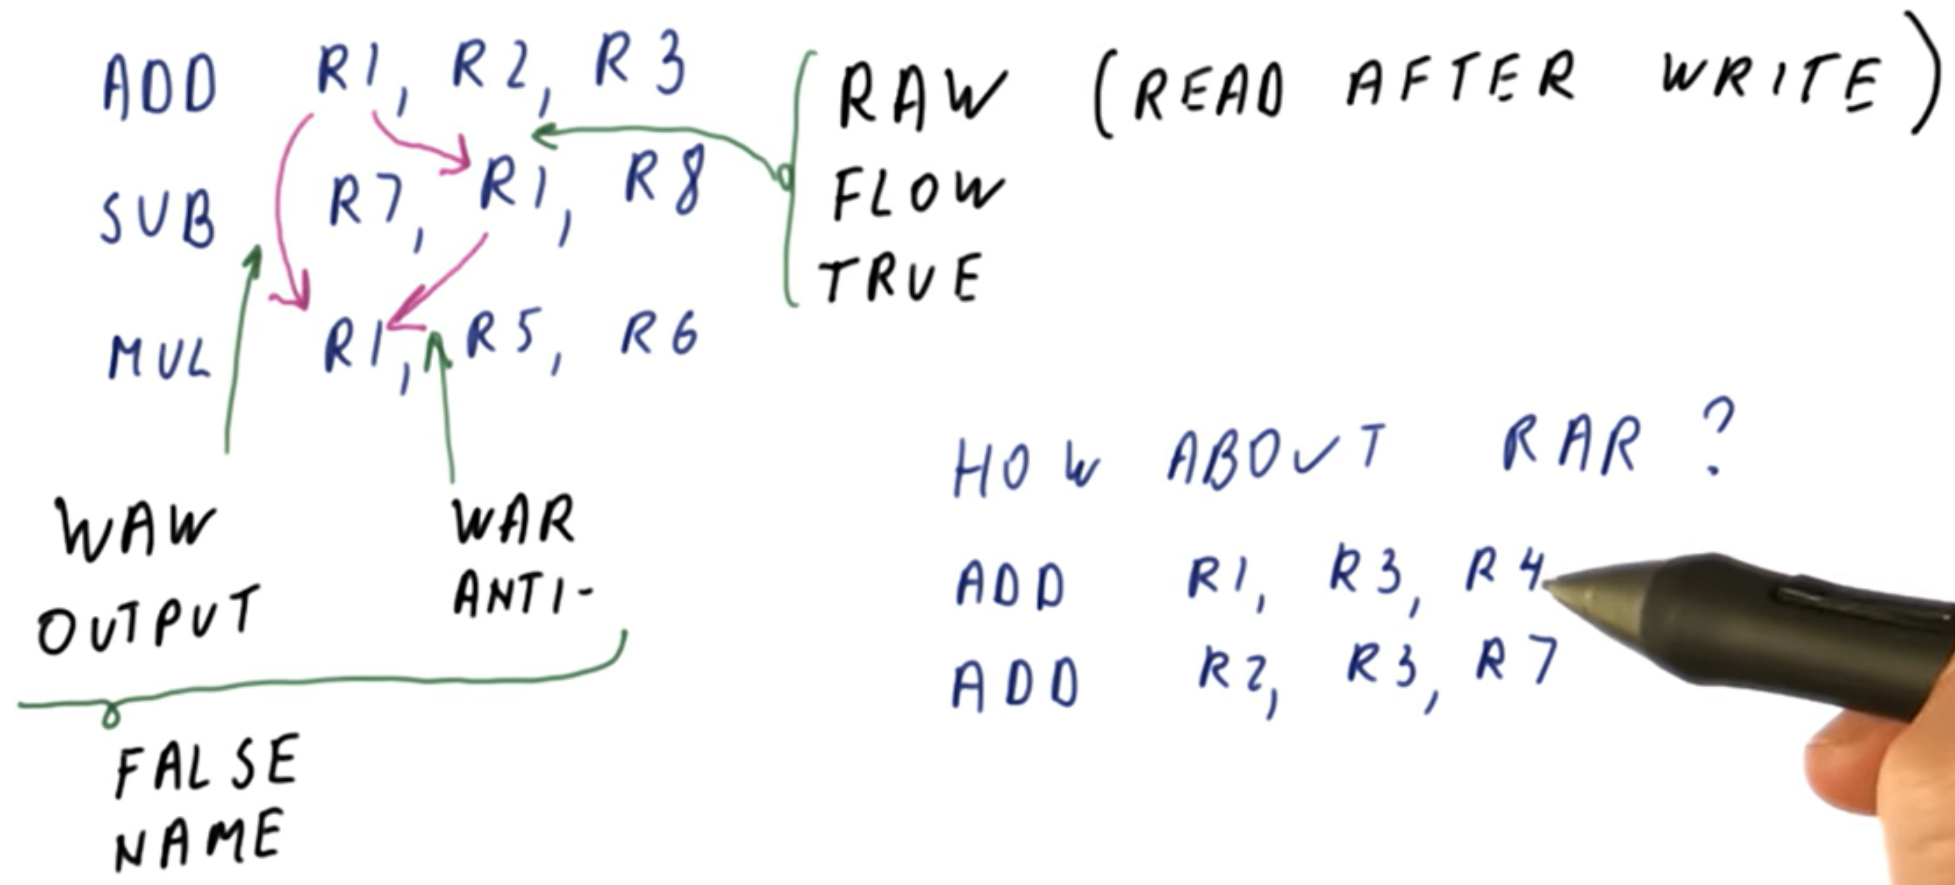 ADD R1, R2, R3
SUB R7, R1, R8
MUL R1, R5, R6
RAW (READ AFTER WRITE)
FLOW
TRUE
WAW
OUTPUT
WAR
ANTI-
FALSE
NAME
HOW ABOUT RAR?
ADD R1, R3, R4
ADD R2, R3, R7